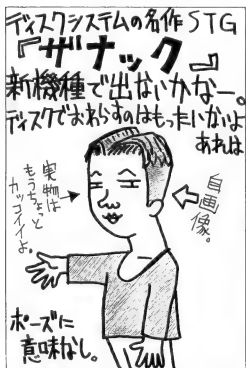 ディスクシステムの名作STG
『ザナック』
新機種で出ないかなー。
ディスクでおわらすのはもったいないよ
あれは
自画像。
実物は
もうちょっと
カッコイイよ。
ポーズに
意味なし。